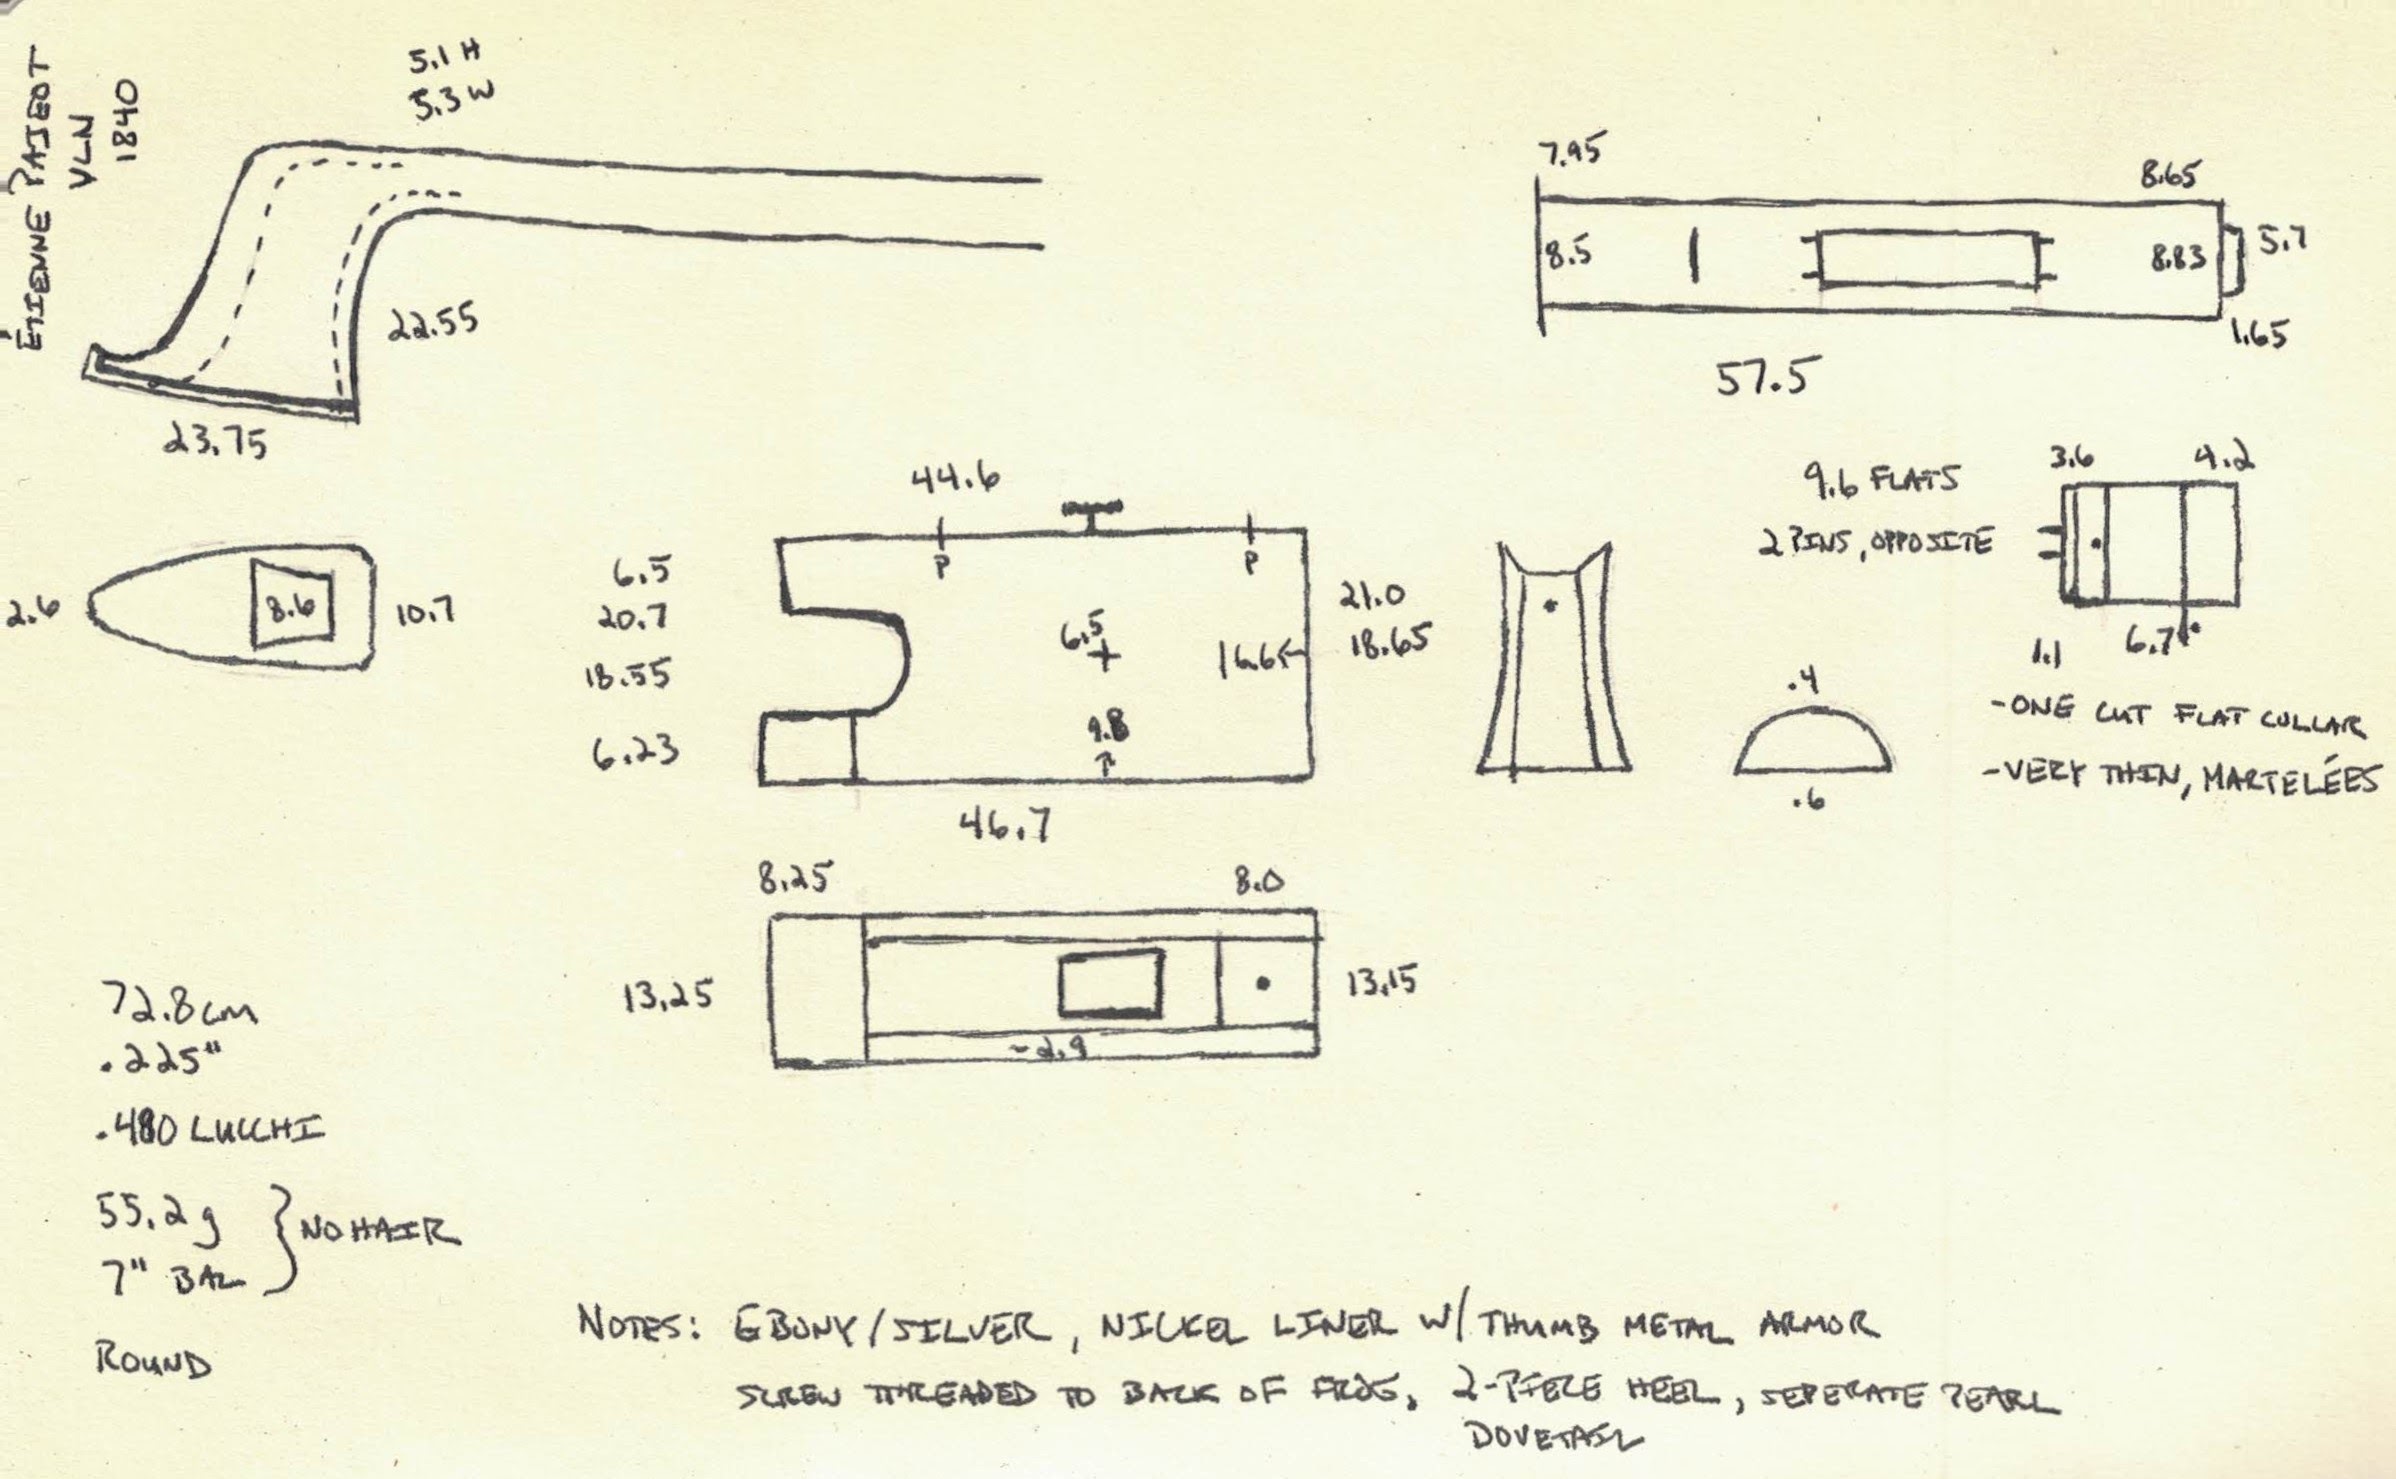 ÉTIENNE PAJEOT
VLN
1840
5.1 H
5.3 W
22.55
23.75
7.95
8.65
8.5
8.83
5.7
1.65
57.5
2.6
8.6
10.7
44.6
P
P
6.5
20.7
18.55
6.23
6.5
16.6
9.8
21.0
18.65
46.7
9.6 FLATS
2 PINS, OPPOSITE
3.6
4.2
1.1
6.7
.4
.6
-ONE CUT FLAT COLLAR
-VERY THIN, MARTELÉES
8.25
8.0
13.25
13.15
-2.9
72.8cm
.225"
.480 LUCCHI
55.2g
7" BAL
} NO HAIR
ROUND
NOTES: EBONY/SILVER, NICKEL LINER W/ THUMB METAL ARMOR
SCREW THREADED TO BACK OF FROG, 2-PIECE HEEL, SEPERATE PEARL
DOVETAIL